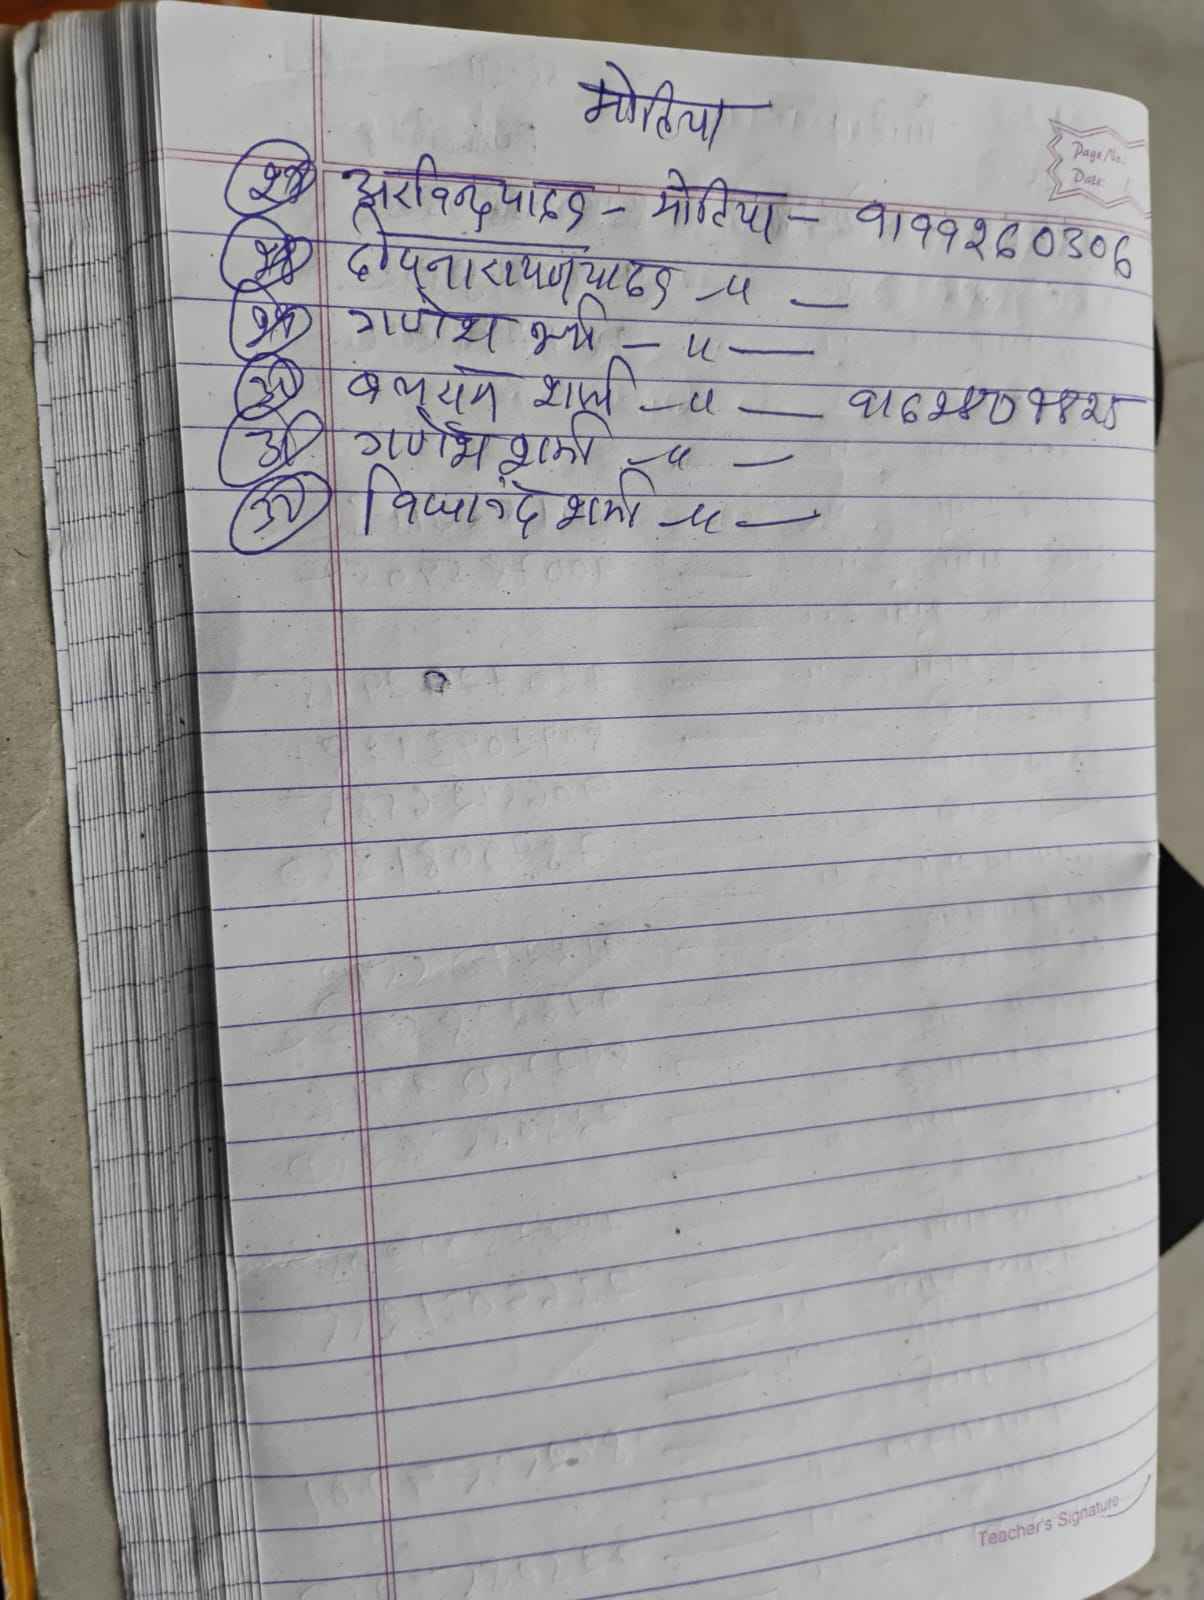 मोतिया
Page No.
Date
अरविन्द यादव - मोतिया - 9199260306
दीपनारायण यादव -〃-
गणेश शर्मा -〃-
३० बलराम शर्मा -〃-
३१ गणेश शर्मा -〃-
३२ शर्मा -〃-
Teacher's Signature